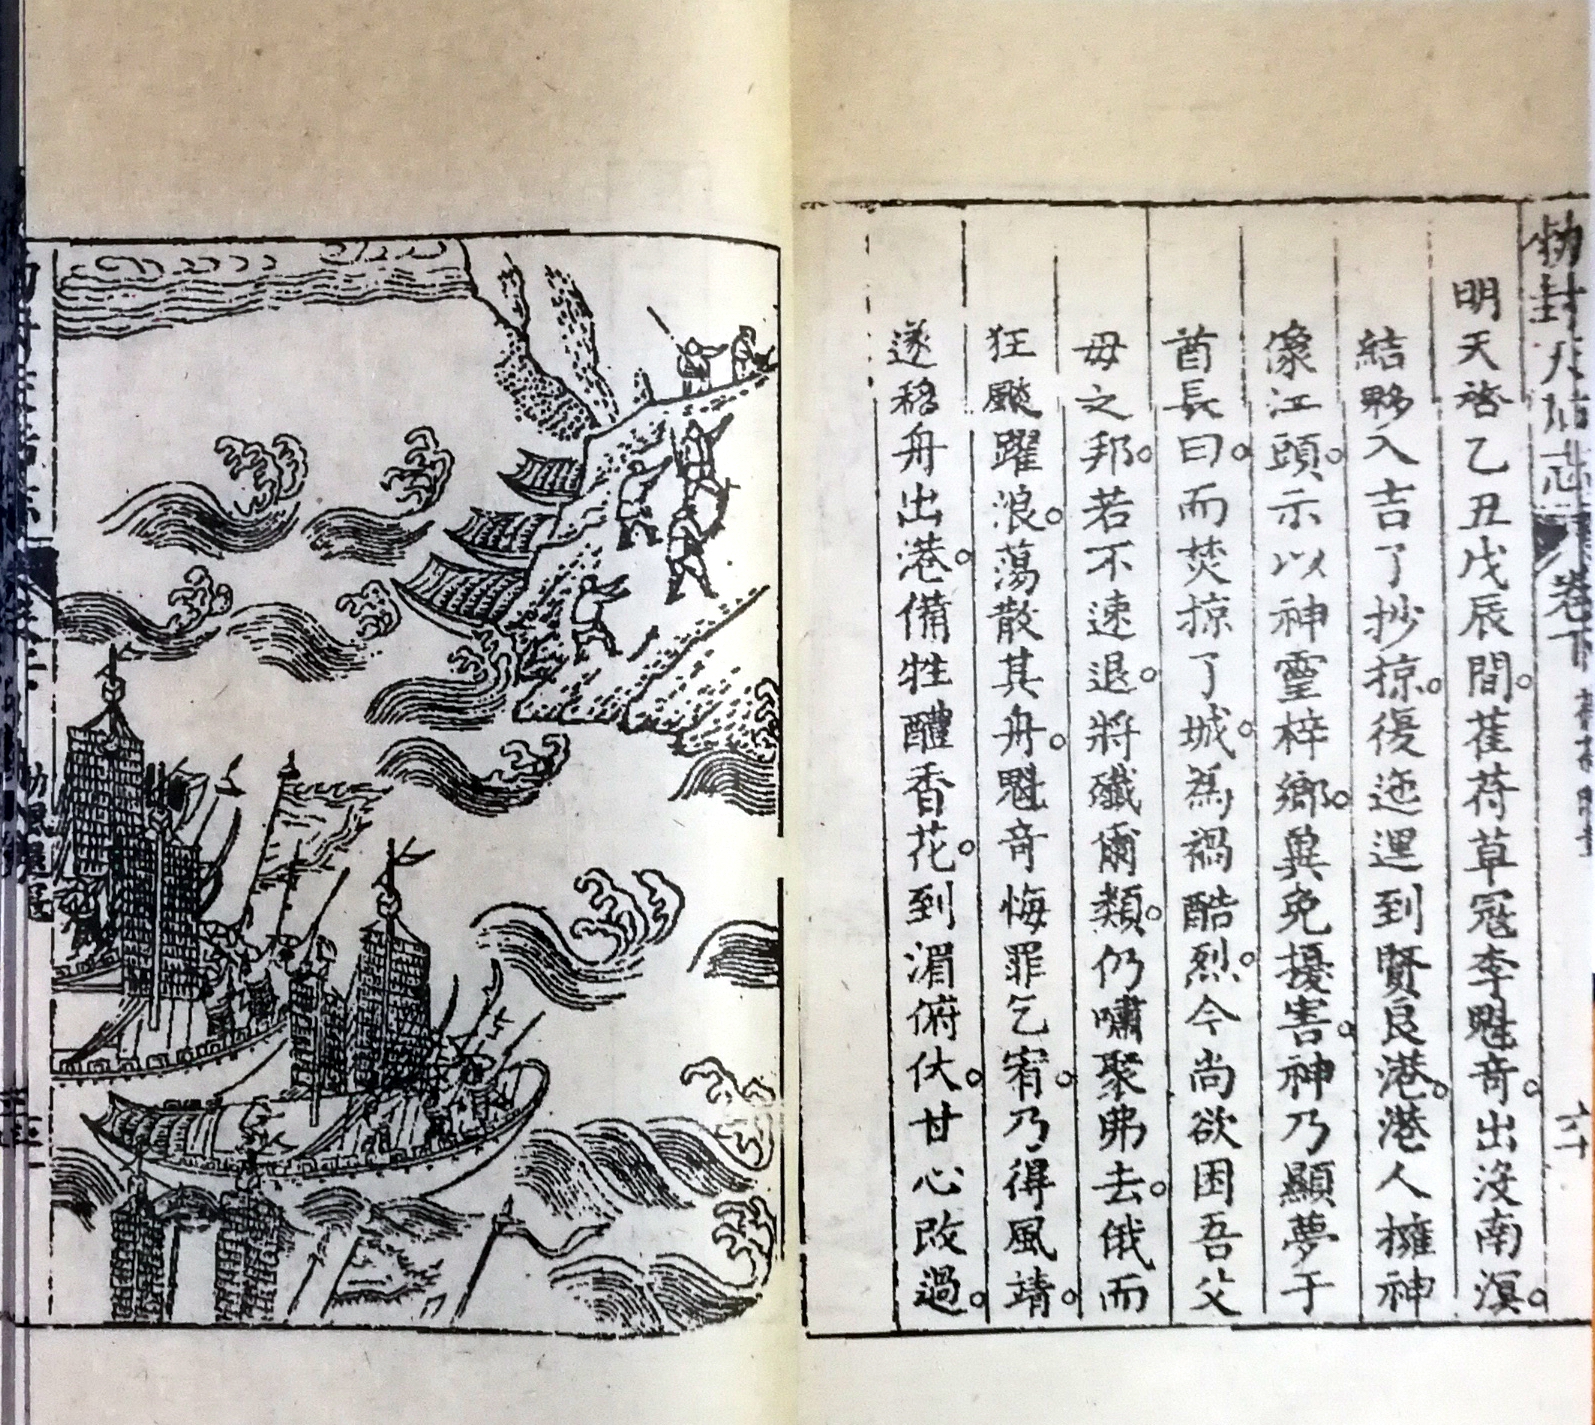 勅封天后志
卷下
六十
明天啓乙丑戊辰間。萑苻草寇李魁竒。出没南溟。
結夥入吉了抄掠。復迤逞到賢良港。港人擁神
像江頭。示以神靈梓鄉。兾免擾害。神乃顯夢于
酋長曰。而焚掠了城。為禍酷烈。今尚欲困吾父
母之邦。若不速退。將殲爾類。仍嘯聚弗去。俄而
狂颷躍浪。蕩散其舟。魁竒悔罪乞宥。乃得風靖。
遂移舟出港。備牲醴香花。到湄俯伏。甘心改過。